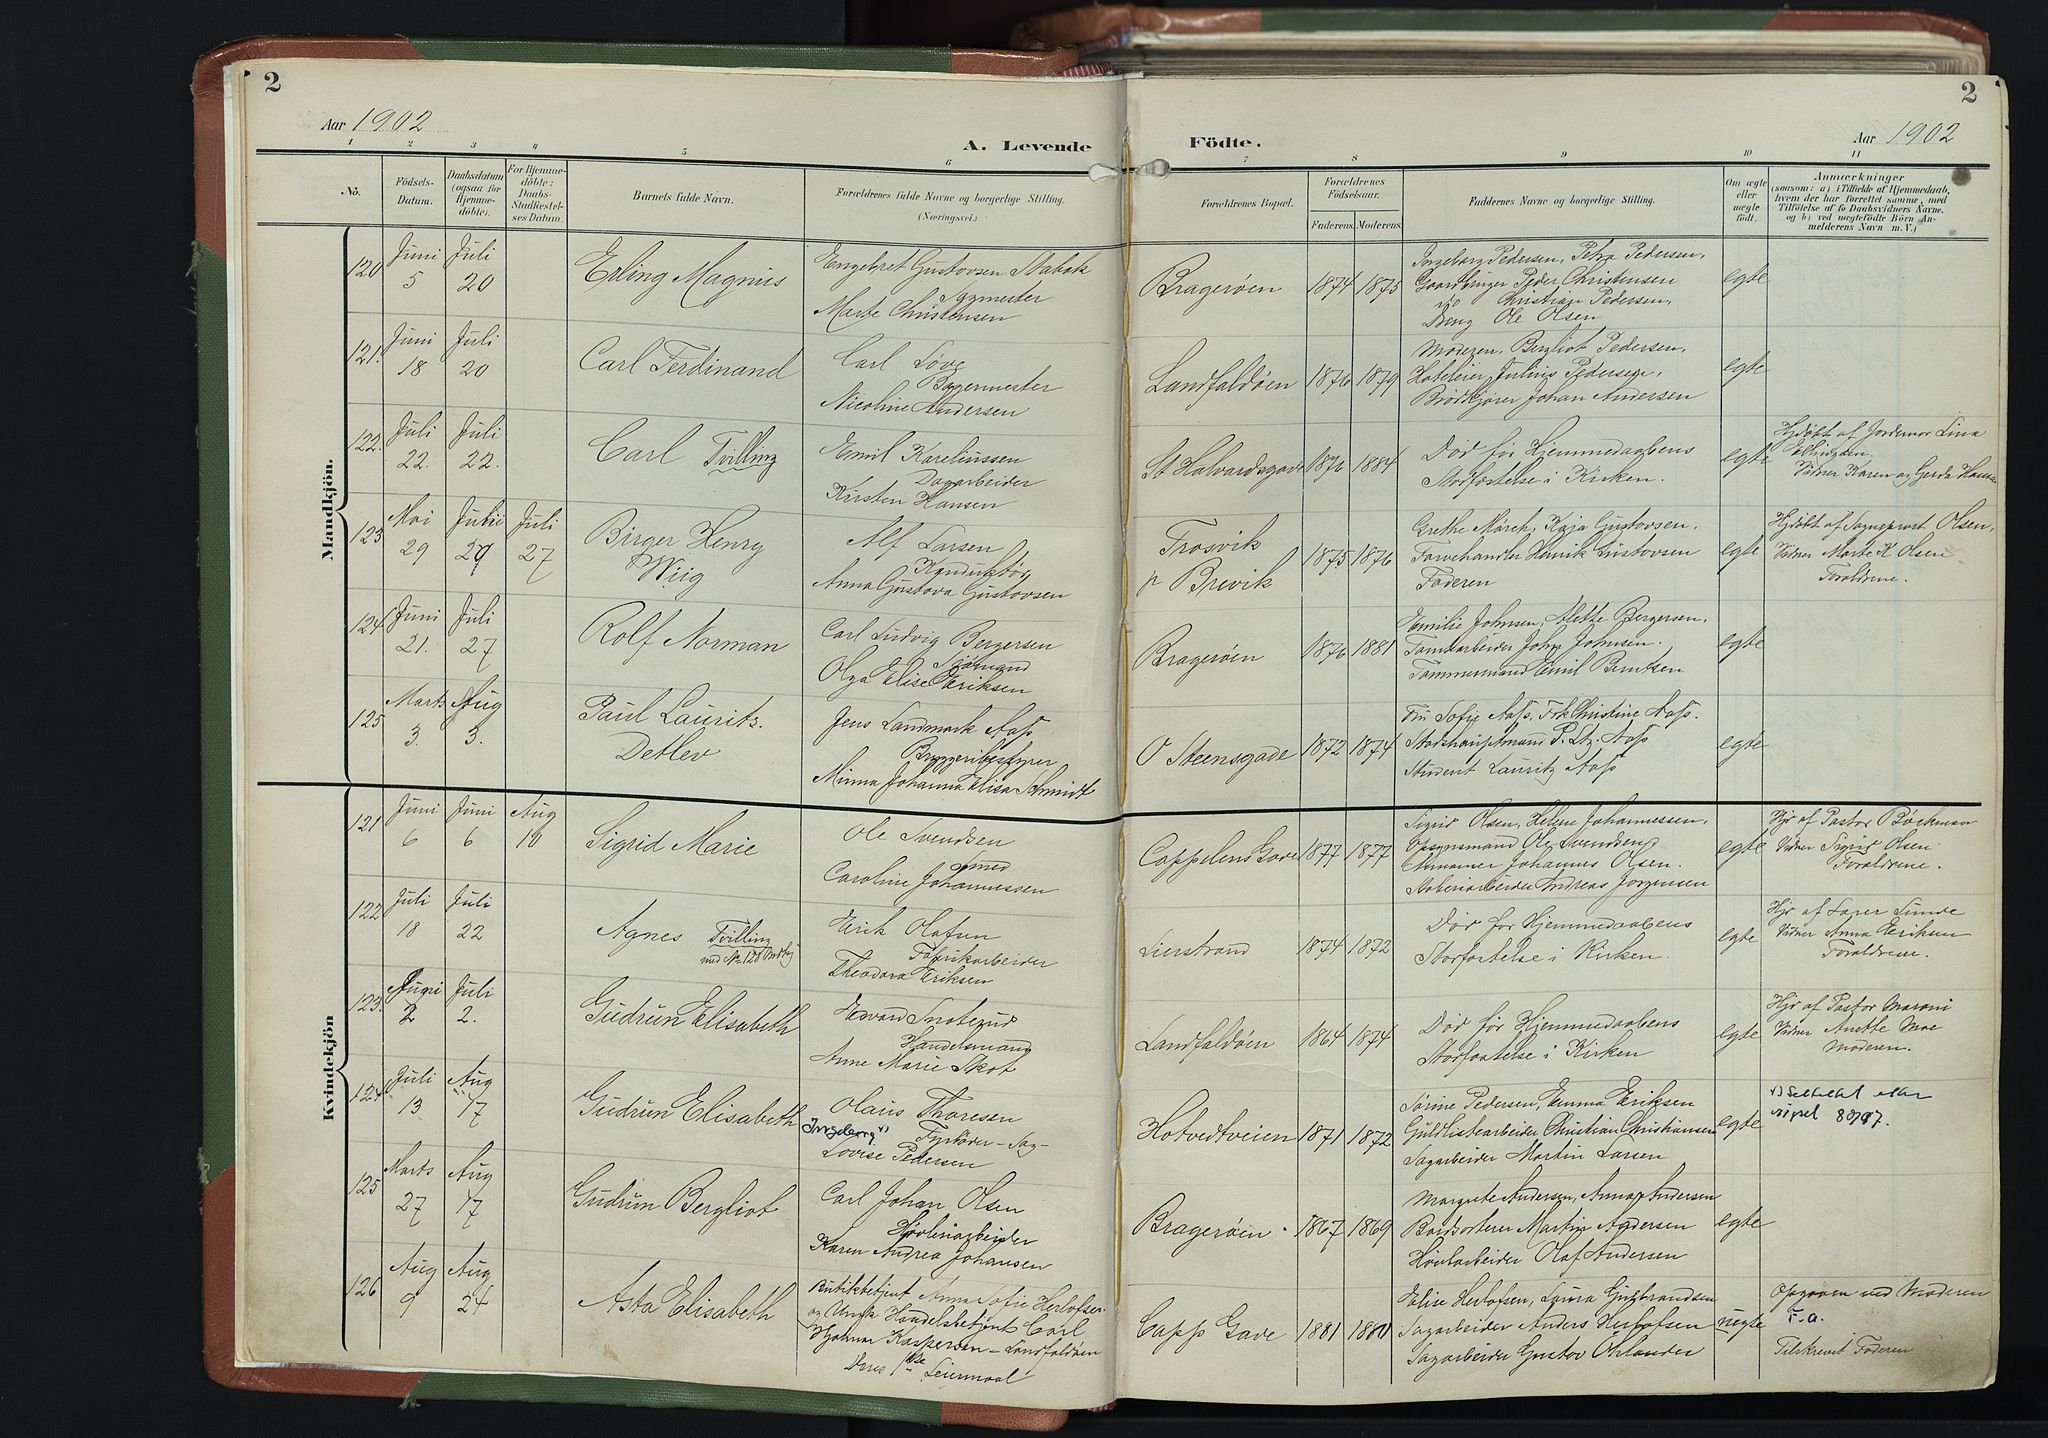 2
2
Aar 1902
A. Levende
Födte.
Aar 1902
1 2 3 4 5 6 7 8 9 10 11
Nö.
Födsels-
Datum.
Daabsdatum
(ogsaa for
Hjemme-
döbte).
For Hjemme-
döbte:
Daabs-
Stadfæstel-
ses Datum.
Barnets fulde Navn.
Forældrenes fulde Navne og borgerlige Stilling.
(Næringsvei.)
Forældrenes Bopæl.
Forældrenes
Födselsaar.
Faderens. Moderens.
Faddernes Navne og borgerlige Stilling.
Om ægte
eller
uægte
födt.
Anmærkninger
(saasom: a) i Tilfælde af Hjemmedaab,
hvem der har forrettet samme, med
Tilföielse af to Daabsvidners Navne,
og b) ved uægtefödte Börn An-
melderens Navn m. V.)
Mandkjön.
120
Juni
5
Juli
20
Erling Magnus
Engebret Gustavsen Stabæk
Sagmester
Marte Christensen
Bragerøen
1874 1875
Ingeborg Pedersen, Petra Pedersen,
Gaardbruger Peder Christensen
do Christian Pedersen,
Ole Olsen
egte
121.
Juni
18
Juli
20
Carl Ferdinand
Carl Løve
Bagermester
Nicoline Andersen
Landfaldøen
1876 1879
Moderen, Bergliot Pedersen,
Hoteleier Julius Pedersen,
Brødkjører Johan Andersen
egte
122.
Juli
22.
Juli
22.
Carl Tvilling
Emil Kareliussen
Dagarbeider
Kirsten Hansen
St Halvardsgade
1876 1884
Død før Hjemmedaabens
Stadfæstelse i Kirken.
egte
Hjdøbt af Jordemor Lina
Vidner Karen og Gerda Hansen
123
Mai
29
Juli
27
Birger Henry
Wiig
Alf Larsen
Konduktør
Anna Gustava Gustavsen
Trosvik
p Brevik
1875 1876
Grethe Mørch, Kaja Gustavsen,
Farvehandler Henrik Gustavsen
Faderen
egte
Hjdøbt af Sogneprest Olsen,
Vidner Marte K Olsen
Forældrene.
124
Juni
21.
Juli
27
Rolf Norman
Carl Ludvig Bergersen
Sjømand
Olga Elise Eriksen
Bragerøen
1876 1881
Emilie Johnsen, Alette Bergersen,
Tomtearbeider John Johnsen.
Tømmermand Emil Bentsen
egte
125
Marts
3.
Aug
3.
Paul Lauritz.
Detlev
Jens Landmark Aass
Bryggeribestyrer
Minna Johanna Elisa Schmidt
O Steensgade
1872 1874
Fru Sofie Aass, Frk Christine Aass.
Stadshauptmand P. Ltz. Aass
Student Lauritz Aass
egte
Kvindekjön
121
Juni
6
Juni
6
Aug
10
Sigrid Marie
Ole Svendsen
Smed
Caroline Johannessen
Cappelens Gade
1877 1877
Sigrid Olsen, Helene Johannessen,
Opsynsmand Ole Svendsen,
Johannes Olsen.
Støberiarbeider Andreas Jørgensen
egte
Hjr af Pastor Bøckman
Vidner Sigrid Olsen
Forældrene.
122
Juli
18
Juli
22
Agnes Tvilling
med No 128
Erik Olafsen
Fabrikarbeider
Theodora Eriksen
Lierstrand
1874 1872
Død før Hjemmedaabens
Stadfæstelse i Kirken.
egte
Hjr af Sunde
Vidner Anna Eriksen
Forældrene.
123.
Juni
2
Juli
2.
Gudrun Elisabeth
Edvard
Handelsmand
Anne Marie Skot
Landfaldøen
1864 1874
Død før Hjemmedaabens
Stadfæstelse i Kirken
egte
Hjr af Pastor Maroni
Vidner Anette Moe
Moderen.
124
Juli
13
Aug
17
Gudrun Elisabeth
Olaus Thoresen
Ingeborg 1) Fyrbøder - Sag
Lovise Pedersen
Hotvedtveien
1871 1872
Sørine Pedersen, Emma Eriksen
Guldlistearbeider Christian Christiansen
Sagarbeider Martin Larsen
egte
125
Marts
27
Aug
17
Gudrun Bergliot
Carl Johan Olsen
Høvleriarbeider
Karen Andrea Johansen
Bragerøen
1867 1869
Margrete Andersen, Anna Andersen
Bordsorterer Martin Andersen
Høvlarbeider Olaf Andersen
egte
126
Aug
9
Aug
24
Asta Elisabeth
Butikbetjent Anna Sofie Herlofsen
og Ungk. Handelsbetjent Carl
Hjalmar Kaspersen - Landfaldøen
Deres 1ste Leiermaal
Capp Gade
1881 1880
Elise Herlofsen, Laura Gulbrandsen
Sagarbeider Anders Herlofsen
Sagarbeider Gustav Øhlander
uegte
Opgaven ved Moderen
F.a.
Tilskrevet Faderen